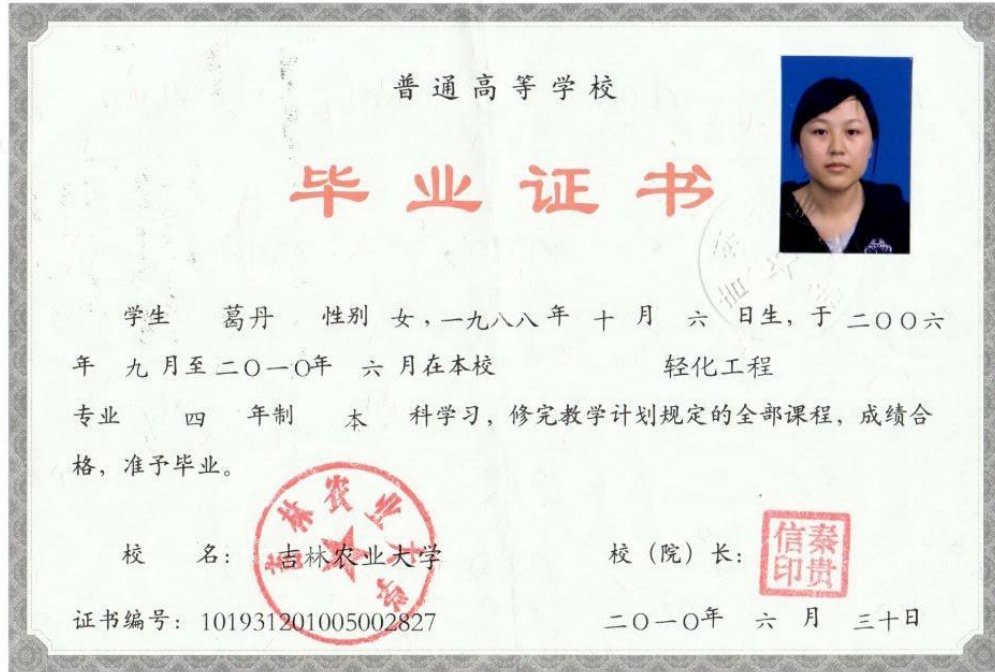 普通高等学校
毕业证书
学生 葛丹 性别 女，一九八八年 十 月 六 日生，于 二〇〇六
年 九 月至 二〇一〇年 六 月在本校 轻化工程
专业 四 年制 本 科学习，修完教学计划规定的全部课程，成绩合
格，准予毕业。
吉林农业大学
校 名： 吉林农业大学
校（院）长：
秦贵信印
证书编号：101931201005002827
二〇一〇年 六 月 三十日